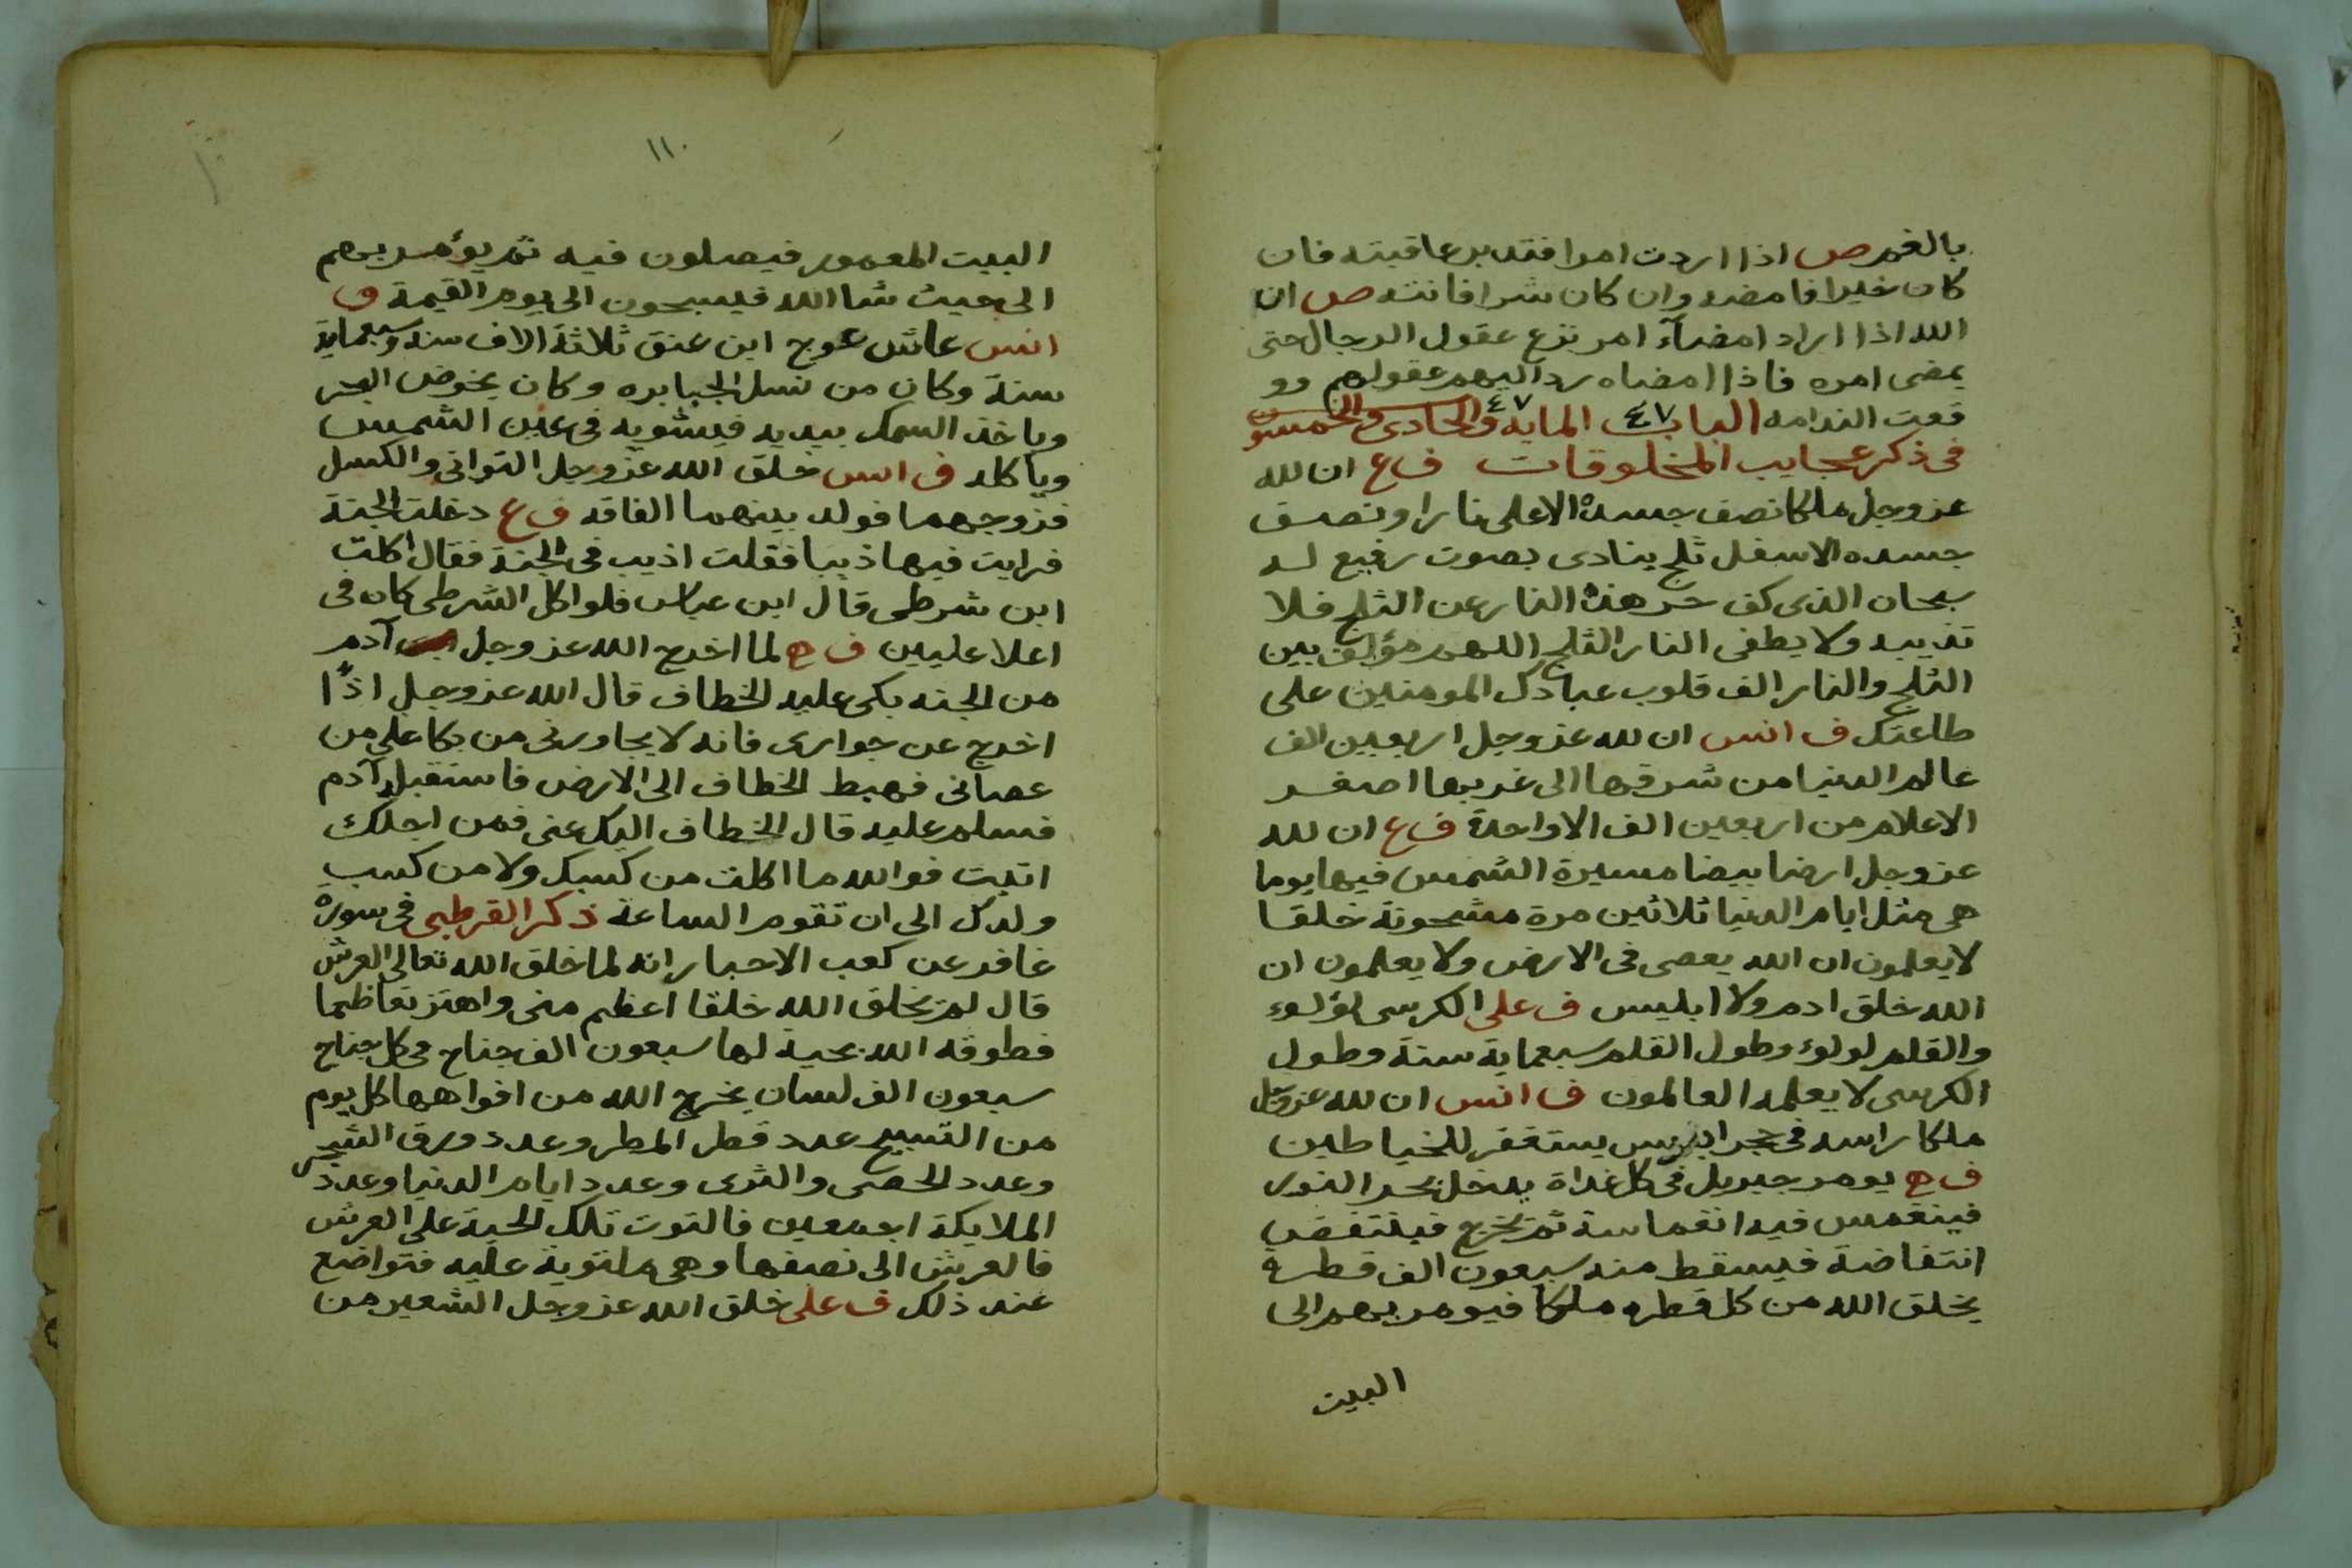 بالغم ص اذا اردت امرا فتدبر عاقبته فان
كان خيرا فامضه وان كان شرا فانته ص ان
الله اذا اراد امضاء امر نزع عقول الرجال حتى
يمضى امره فاذا امضاه رد اليهم عقولهم وو
قعت الندامه الباب ٤٧ المايه ٤٧ والحادى والخمسون
فى ذكر عجايب المخلوقات ف ع ان لله
عز وجل ملكا نصف جسده الاعلى نارا ونصف
جسده الاسفل ثلج ينادى بصوت رفيع له
سبحان الذى كف حر هذه النار عن الثلج فلا
تذيبه ولا يطفى النار الثلج اللهم مؤلف بين
الثلج والنار الف قلوب عبادك المومنين على
طاعتك ف انس ان لله عز وجل اربعين الف
عالم الدنيا من شرقها الى غربها اصغر
الاعلام من اربعين الف الا واحدة ف ع ان لله
عز وجل ارضا بيضا مسيرة الشمس فيها يوما
هى مثل ايام الدنيا ثلاثين مرة مشحونة خلقا
لا يعلمون ان الله يعصى فى الارض ولا يعلمون ان
الله خلق ادم ولا ابليس ف على الكرسى لؤلوء
والقلم لولوء وطول القلم سبعماية سنة وطول
الكرسى لا يعلمه العالمون ف انس ان لله عز وجل
ملكا راسه فى حجر ادريس يستغفر للخياطين
ف ه يومر جبريل فى كل غداة يدخل بحر النور
فينغمس فيه انغماسة ثم يخرج فينتفض
انتفاضة فيسقط منه سبعون الف قطرة
يخلق الله من كل قطره ملكا فيومر بهم الى
البيت
١١٠
البيت المعمور فيصلون فيه ثم يؤمر بهم
الى حيث شا الله فيسبحون الى يوم القيمة ف
انس عاش عوج ابن عنق ثلاثة الاف سنة وسبعماية
سنة وكان من نسل الجبابره وكان يخوض البحر
وياخذ السمك بيديه فيشويه فى عين الشمس
وياكله ف انس خلق الله عز وجل التوانى والكسل
فزوجهما فولد بينهما الفاقه ف ع دخلت الجنة
فرايت فيها ذيبا فقلت اذيب فى الجنة فقال اكلت
ابن شرطى قال ابن عباس فلو اكل الشرطى كان فى
اعلا عليين ف ه لما اخرج الله عز وجل آدم
من الجنه بكى عليه الخطاف قال الله عز وجل اذًا
اخرج عن جوارى فانه لا يجاورنى من بكا على من
عصانى فهبط الخطاف الى الارض فاستقبله آدم
فسلم عليه قال الخطاف اليك عنى فمن اجلك
اتيت فوالله ما اكلت من كسبك ولا من كسب
ولدك الى ان تقوم الساعة ذكر القرطبى فى سورة
غافر عن كعب الاحبار انه لما خلق الله تعالى العرش
قال لم يخلق الله خلقا اعظم منى واهتز تعاظما
فطوقه الله بحية لها سبعون الف جناح فى كل جناح
سبعون الف لسان يخرج الله من افواهها كل يوم
من التسبيح عدد قطر المطر وعدد ورق الشجر
وعدد الحصى والثرى وعدد ايام الدنيا وعدد
الملايكة اجمعين فالتوت تلك الحية على العرش
فالعرش الى نصفها وهى ملتوية عليه فتواضع
عند ذلك ف على خلق الله عز وجل الشعير من